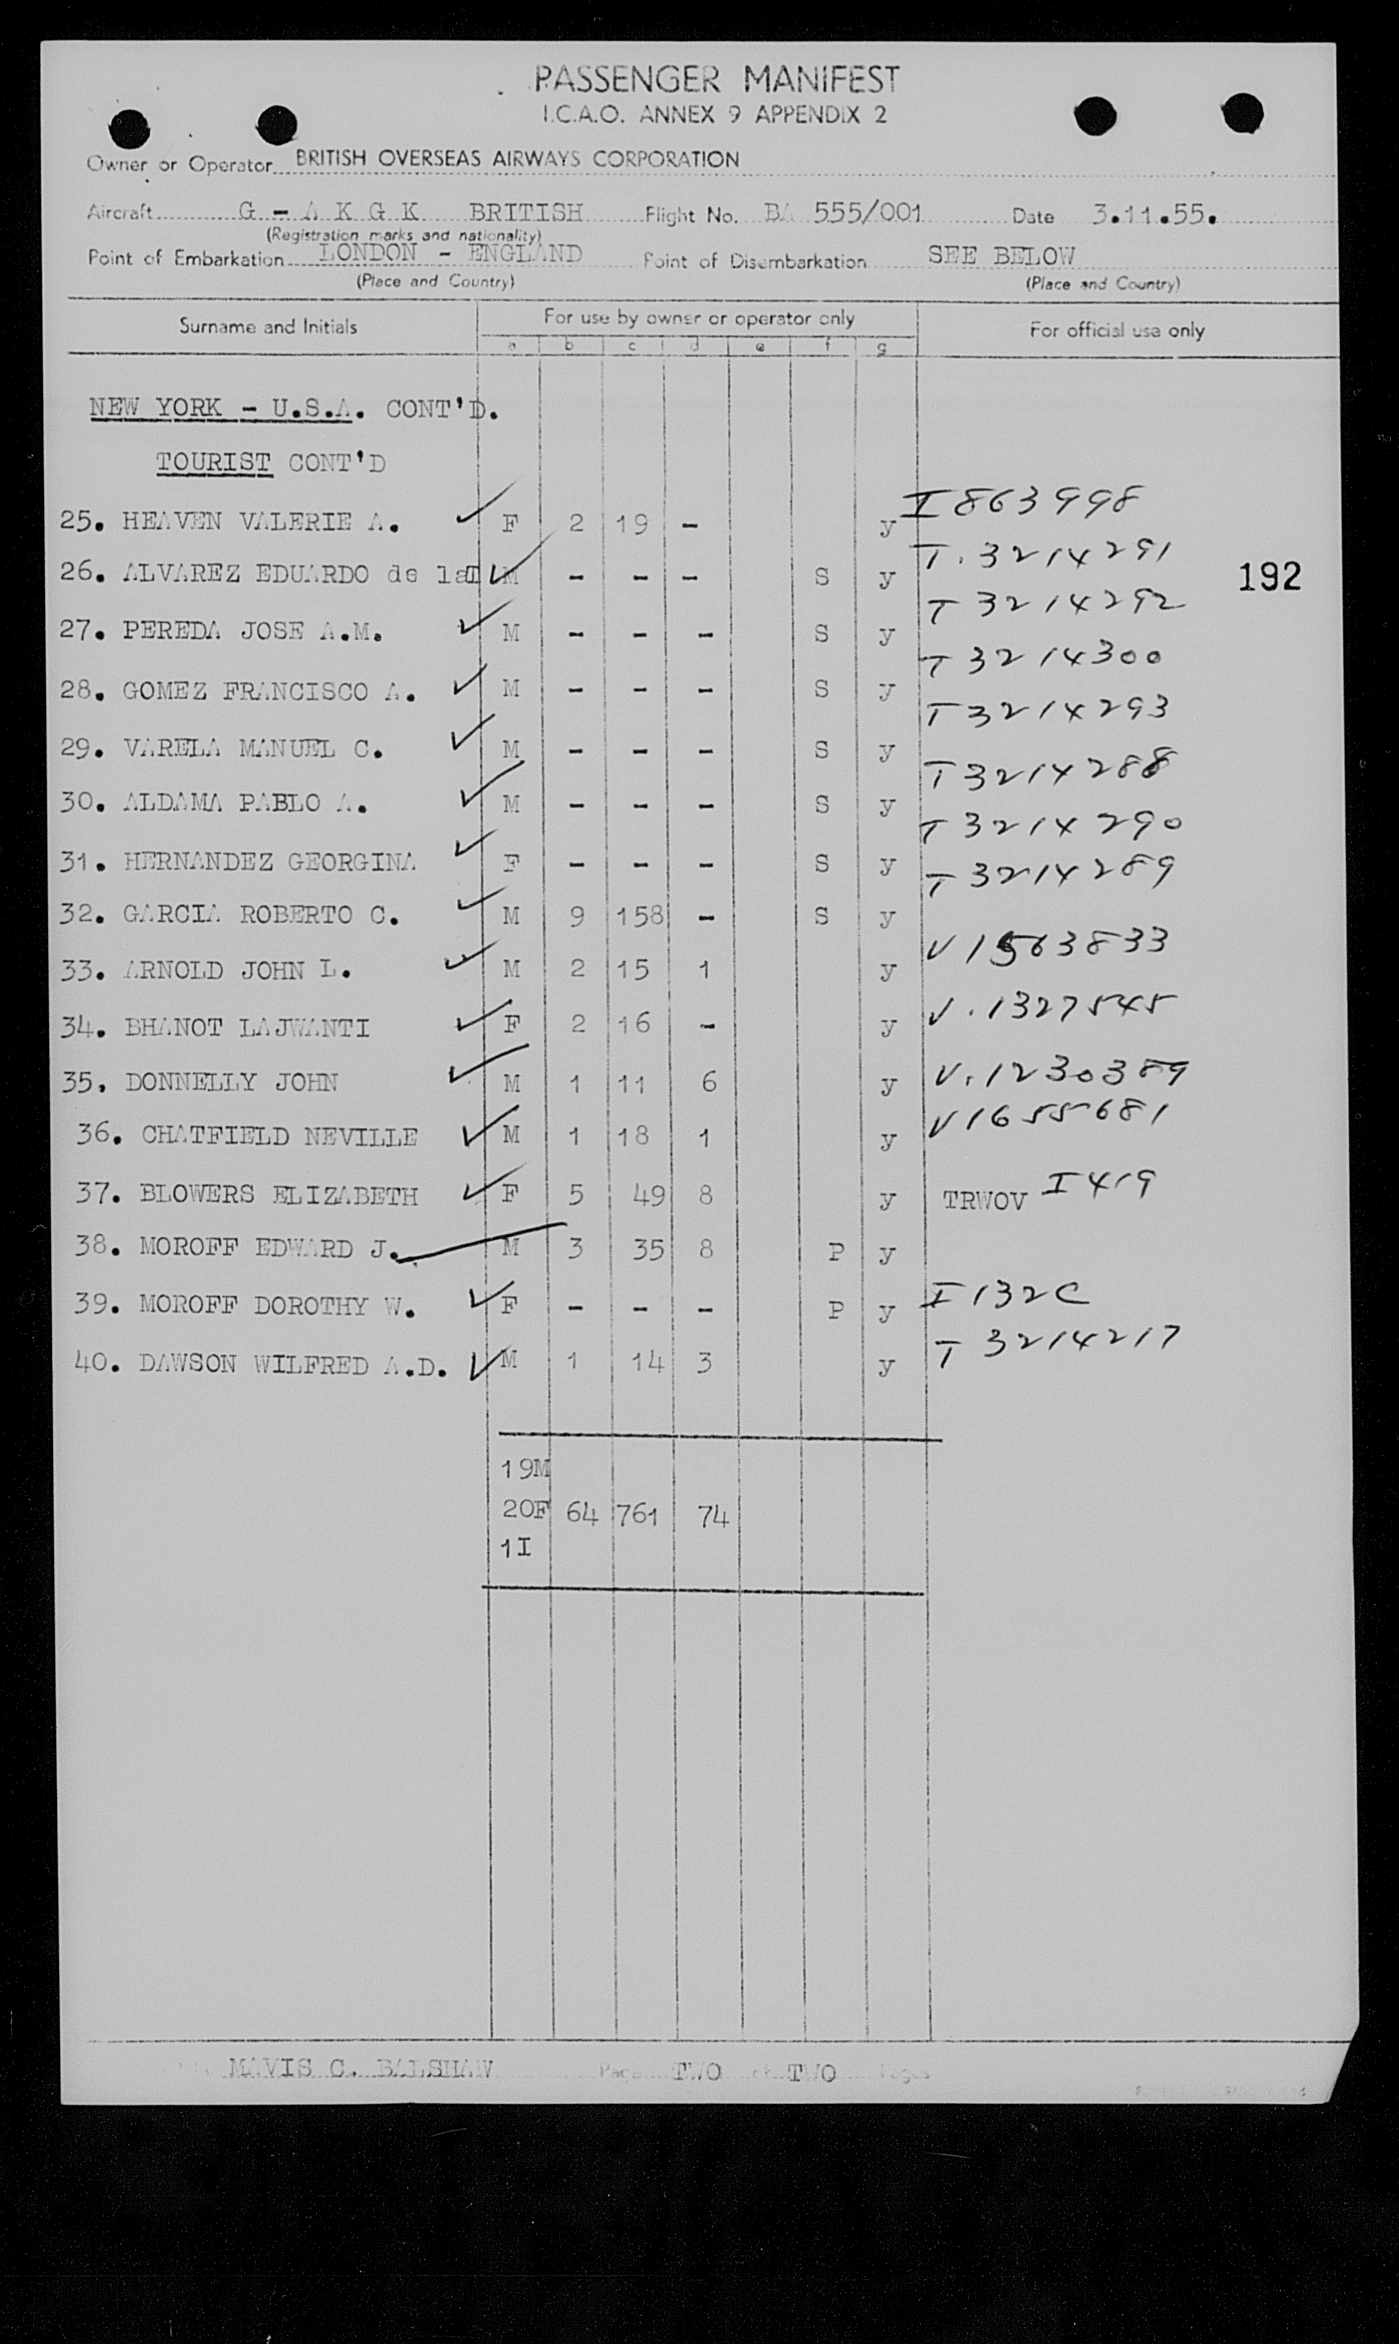 PASSENGER MANIFEST
I.C.A.O. ANNEX 9 APPENDIX 2
Owner or Operator BRITISH OVERSEAS AIRWAYS CORPORATION
Aircraft G - A K G K BRITISH Flight No. BA 555/001 Date 3.11.55.
(Registration marks and nationality)
Point of Embarkation LONDON - ENGLAND Point of Disembarkation SEE BELOW
(Place and Country) (Place and Country)
Surname and Initials For use by owner or operator only For official use only
a b c d e f g
NEW YORK - U.S.A. CONT'D.
TOURIST CONT'D
25. HEAVEN VALERIE A. ✓ F 2 19 - y I 863998
26. ALVAREZ EDUARDO de laT ✓ M - - - S y T. 3214291
192
27. PEREDA JOSE A.M. ✓ M - - - S y T 3214292
28. GOMEZ FRANCISCO A. ✓ M - - - S y T 3214300
29. VARELA MANUEL C. ✓ M - - - S y T 3214293
30. ALDAMA PABLO A. ✓ M - - - S y T 3214288
31. HERNANDEZ GEORGINA ✓ F - - - S y T 3214290
32. GARCIA ROBERTO C. ✓ M 9 158 - S y T 3214289
33. ARNOLD JOHN L. ✓ M 2 15 1 y V 1563833
34. BHANOT LAJWANTI ✓ F 2 16 - y V. 1327545
35. DONNELLY JOHN ✓ M 1 11 6 y V. 1230389
36. CHATFIELD NEVILLE ✓ M 1 18 1 y V 1655681
37. BLOWERS ELIZABETH ✓ F 5 49 8 y TRWOV I 419
38. MOROFF EDWARD J. M 3 35 8 P y
39. MOROFF DOROTHY W. ✓ F - - - P y I 132C
40. DAWSON WILFRED A.D. ✓ M 1 14 3 y T 3214217
19M
20F 64 761 74
1I
MAVIS C. BALSHAW Page TWO of TWO Pages